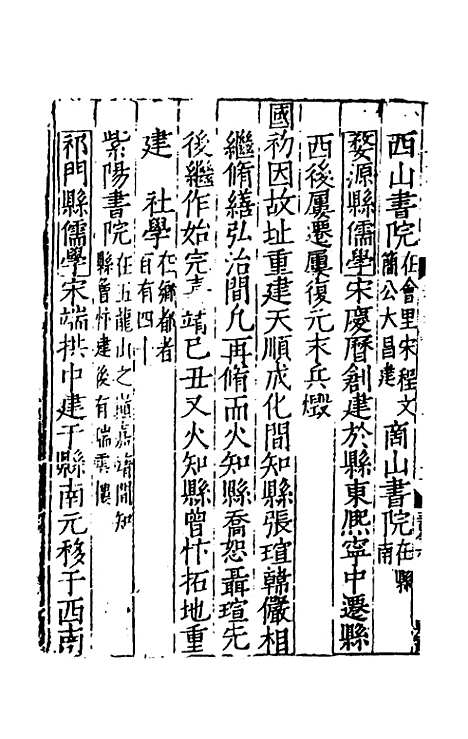 西山書院在會里宋程文簡公大昌建 商山書院在縣南
婺源縣儒學宋慶曆創建於縣東熈寧中遷縣
西後屢遷屢復元末兵燬
國初因故址重建天順成化間知縣張瑄韓儼相
繼脩繕弘治間凡再脩而火知縣喬恕聶瑄先
後繼作始完 靖已丑又火知縣曾忭拓地重
建 社學在鄉都者百有四十
紫陽書院在五龍山之巔嘉靖間知縣曾忭建後有瑞雲樓
祁門縣儒學宋端拱中建于縣南元移于西南